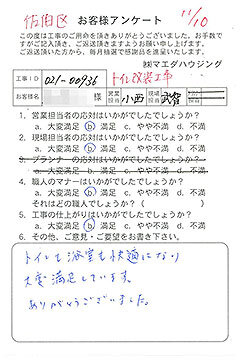 佐伯区 お客様アンケート 11/10
この度は工事のご用命を頂きありがとうございました。お手数で
すがご記入頂き、ご返送頂きますようお願い申し上げます。
ご返送頂いた方から、毎月抽選で感謝品を進呈いたします。
㈱マエダハウジング
工事ID 021-00936 トイレ改装工事
お客様名 様 営業担当 小西 現場担当 武智
1. 営業担当者の応対はいかがでしたでしょうか?
a. 大変満足 b. 満足 c. やや不満 d. 不満
2. 現場担当者の応対はいかがでしたでしょうか?
a. 大変満足 b. 満足 C. やや不満 d. 不満
3. プランナーの応対はいかがでしたでしょうか?
a. 大変満足 b. 満足 c. やや不満 d. 不満
4. 職人のマナーはいかがでしたでしょうか?
a. 大変満足 b. 満足 C. やや不満 d. 不満
それはどの職人でしょうか?( )
5. 工事の仕上がりはいかがでしたでしょうか?
a. 大変満足 b. 満足 c. やや不満 d. 不満
6. その他、ご意見・ご要望をお書き下さい。
トイレも浴室も快適になり
大変満足しています。
ありがとうございました。